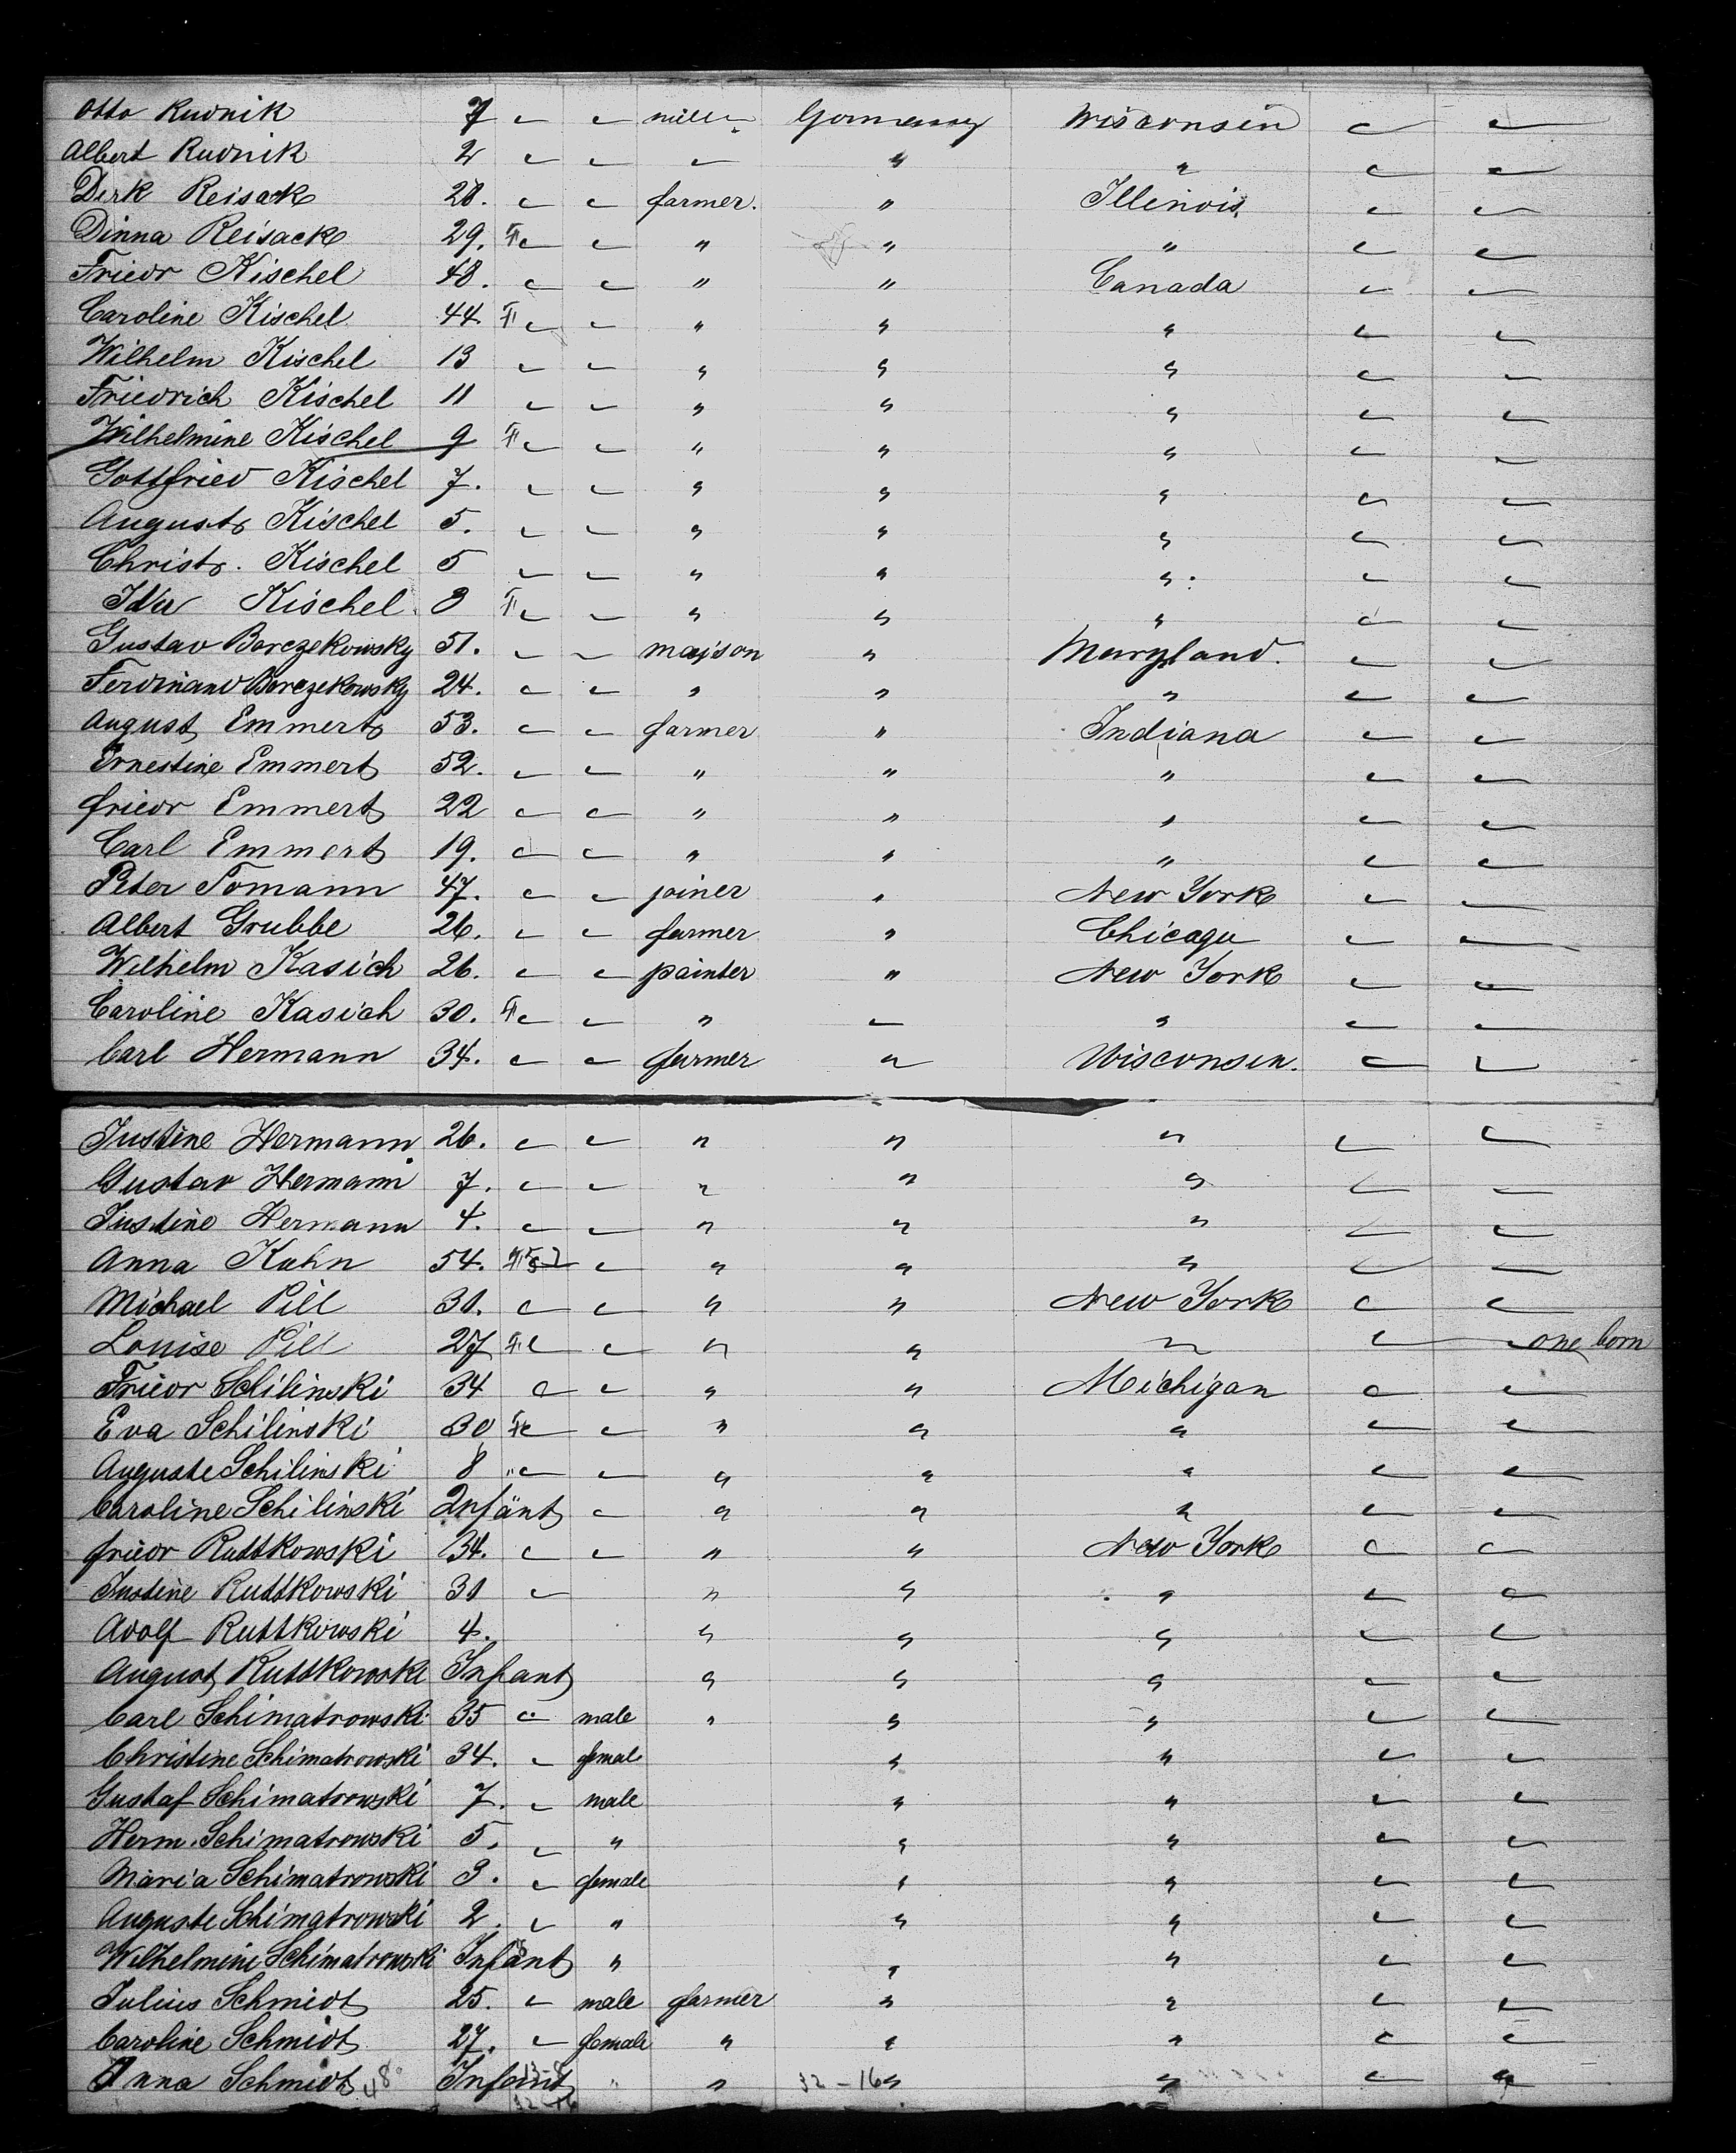 Otto Rudnik 7 " " miller Germany Wisconsin " "
Albert Rudnik 2 " " " " " " "
Dirk Reisack 28. " " farmer. " Illinois. " "
Dinna Reisack 29. F " " " " " " "
Friedr Kischel 48. " " " " Canada " "
Caroline Kischel 44. F " " " " " " "
Wilhelm Kischel 13 " " " " " " "
Friedrich Kischel 11 " " " " " " "
Wilhelmine Kischel 9 F " " " " " " "
Gottfried Kischel 7. " " " " " " "
August Kischel 5. " " " " " " "
Christ. Kischel 5 " " " " " " "
Ida Kischel. 3 F " " " " " " "
Gustav Borczekowsky 51. " " mayson " Maryland. " "
Ferdinand Borczekowsky 24. " " " " " " "
August Emmert 53. " " farmer " Indiana " "
Ernestine Emmert 52. " " " " " " "
friedr Emmert 22 " " " " " " "
Carl Emmert 19. " " " " " " "
Peter Tomann 47. " " joiner " New York " "
Albert Grubbe 26. " " farmer " Chicago " "
Wilhelm Kasich 26. " " painter " New York " "
Caroline Kasich 30. F " " " " " " "
Carl Hermann 34. " " farmer " Wisconsin. " "
Justine Hermann. 26. " " " " " " "
Gustav Hermann 7. " " " " " " "
Justine Hermann 4. " " " " " " "
Anna Kuhn 54. F " " " " " "
Michael Pill 31. " " " " New York " "
Louise Pill 27 F " " " " " " " one born
Friedr Schilinski 34 " " " " Michigan " "
Eva Schilinski 30 F " " " " " " "
Auguste Schilinski 8 " " " " " " " "
Caroline Schilinski Infant " " " " " "
friedr Ruttkowski 34. " " " " New York " "
Justine Ruttkowski 31 " " " " " "
Adolf Ruttkowski 4. " " " " "
August Ruttkowski Infant " " " " "
Carl Schimatrowski 35 " male " " " " "
Christine Schimatrowski 34. " femal " " " "
Gustaf Schimatrowski 7. " male " " " "
Herm. Schimatrowski 5. " " " " " "
Maria Schimatrowski 3. " female " " " "
Auguste Schimatrowski 2. " " " " " "
Wilhelmine Schimatrowski Infant " " " " "
Julius Schmidt 25. " male farmer " " " "
Caroline Schmidt 27. " female " " " " "
Anna Schmidt 48 Infant " " 32-16 " " " "